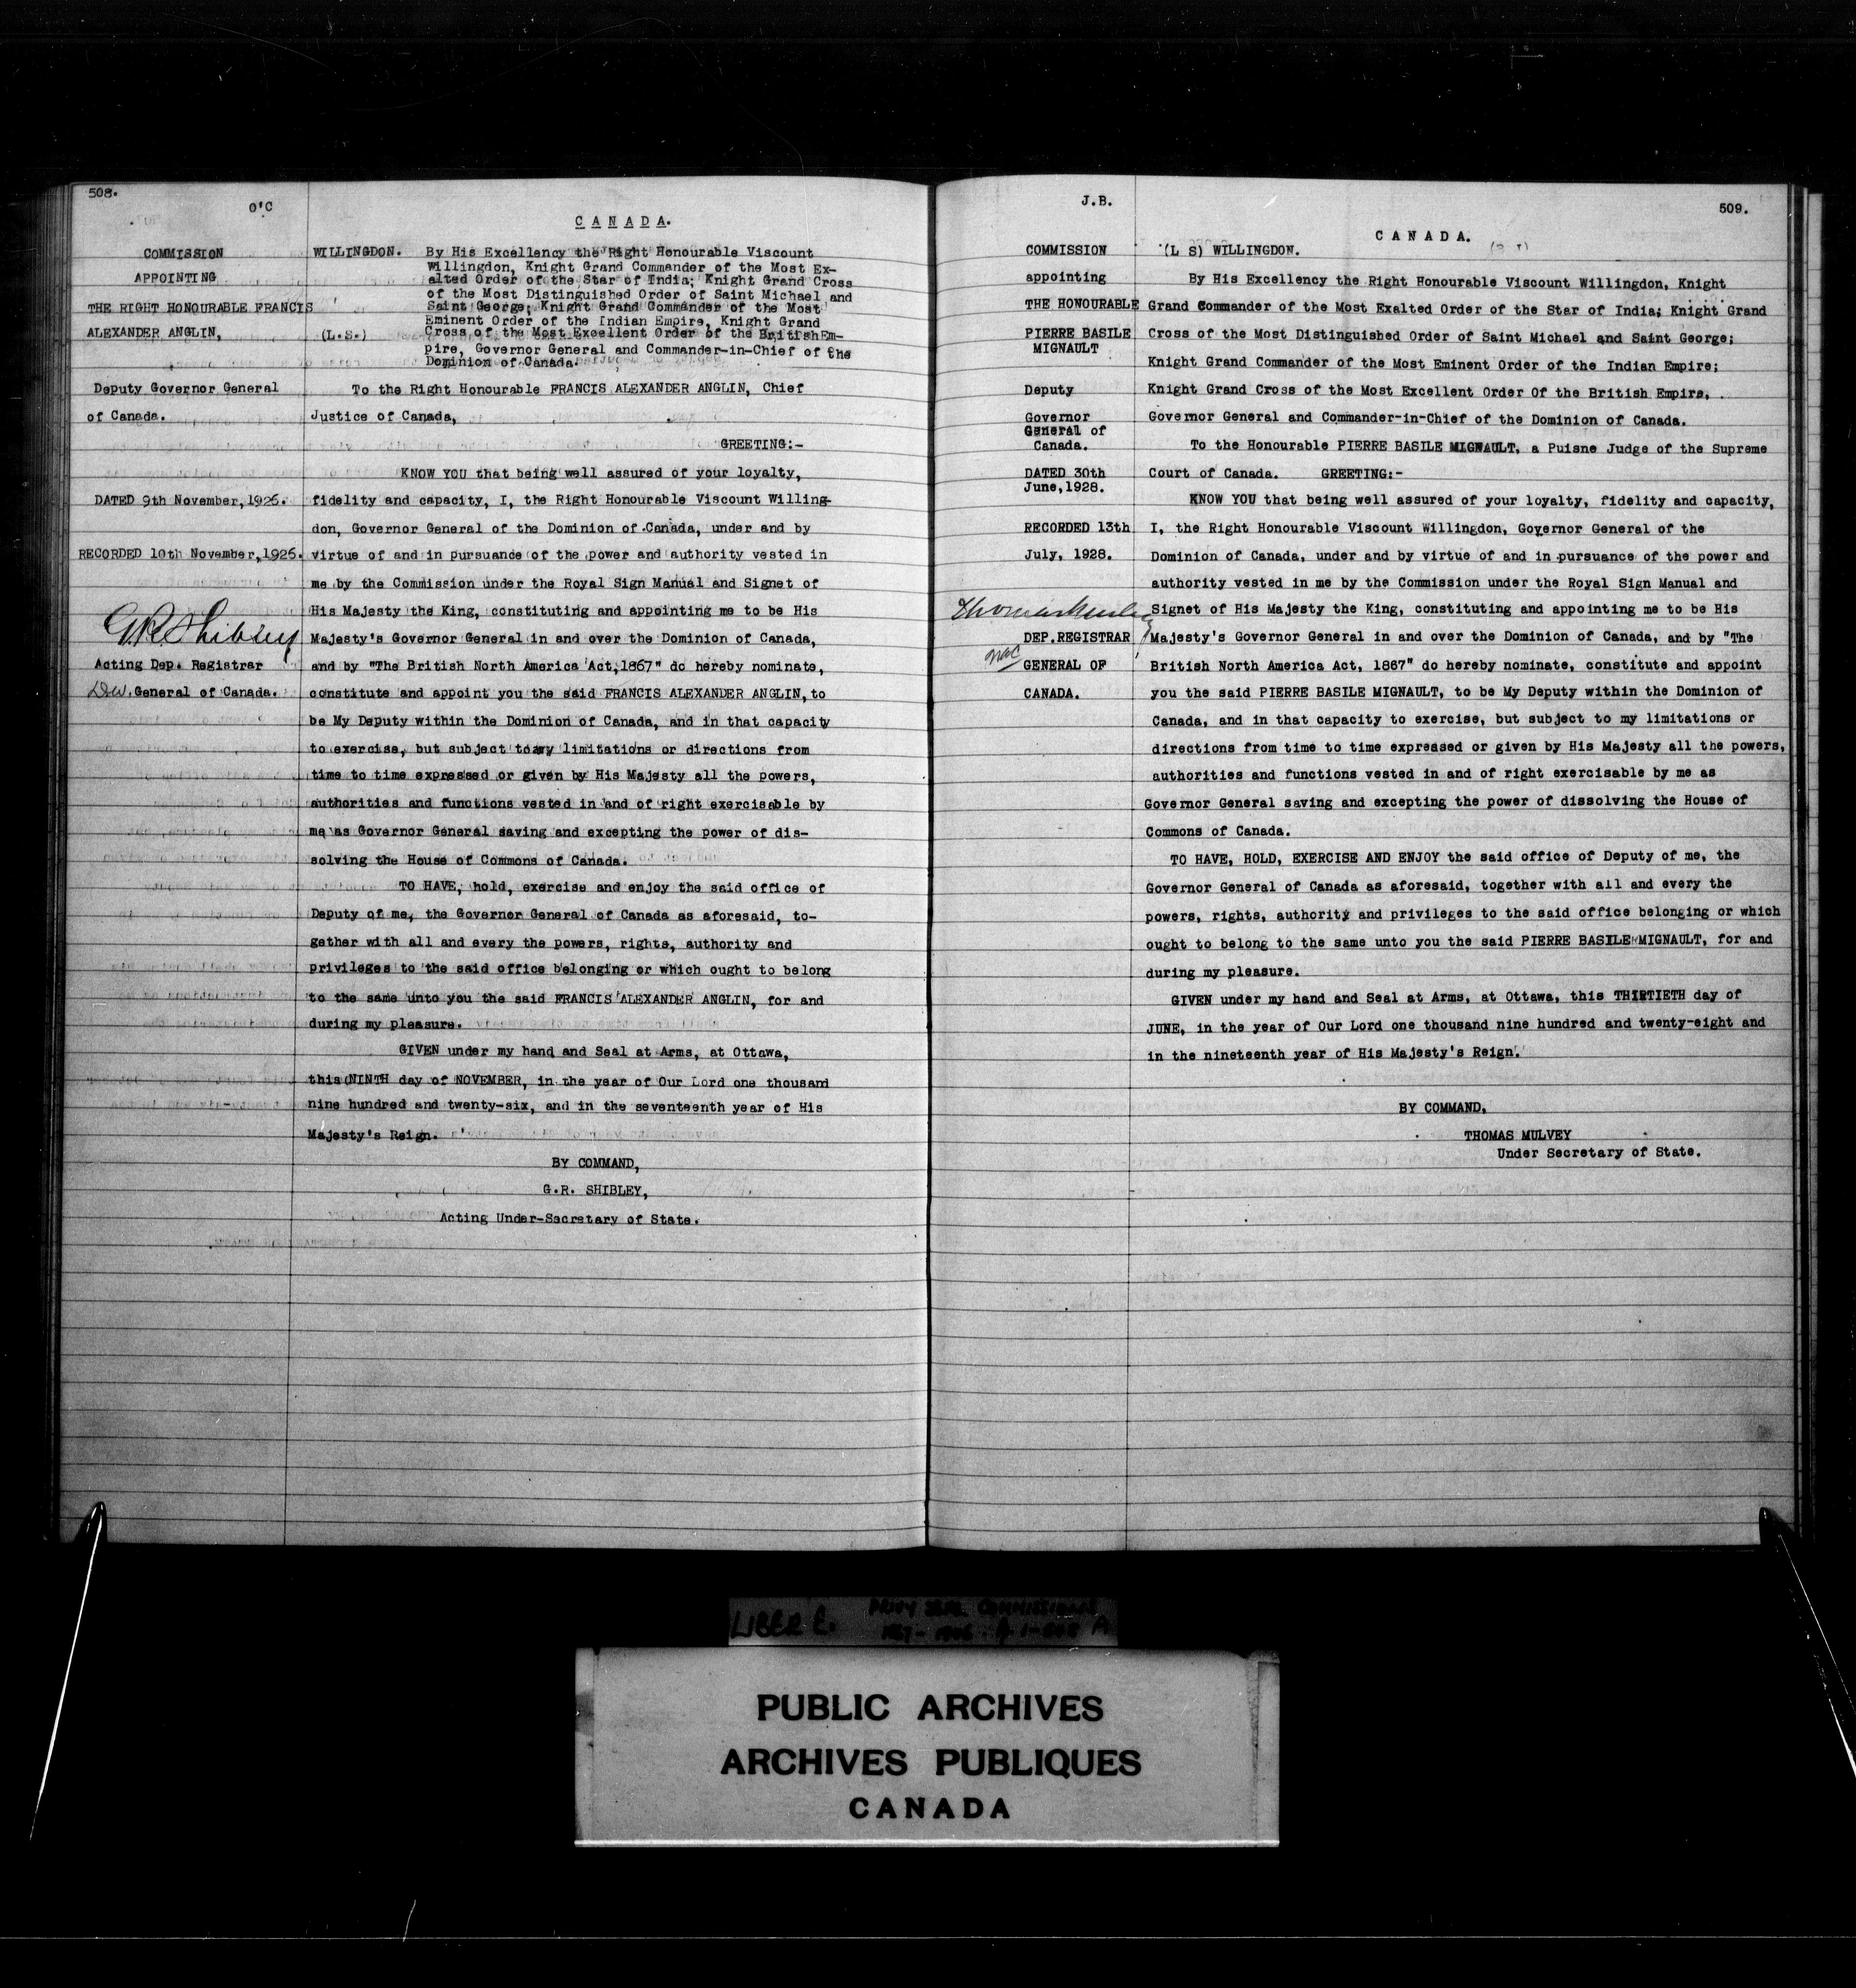 508.
O'C
C A N A D A.
COMMISSION
APPOINTING
THE RIGHT HONOURABLE FRANCIS
ALEXANDER ANGLIN,
Deputy Governor General
of Canada.
DATED 9th November, 1926.
RECORDED 10th November, 1926.
G.R. Shibley
Acting Dep. Registrar
General of Canada.
WILLINGDON. By His Excellency the Right Honourable Viscount
Willingdon, Knight Grand Commander of the Most Ex-
alted Order of the Star of India; Knight Grand Cross
of the Most Distinguished Order of Saint Michael and
Saint George; Knight Grand Commander of the Most
Eminent Order of the Indian Empire, Knight Grand
(L.S.) Cross of the Most Excellent Order of the British Em-
pire, Governor General and Commander-in-Chief of the
Dominion of Canada.
To the Right Honourable FRANCIS ALEXANDER ANGLIN, Chief
Justice of Canada,
GREETING:-
KNOW YOU that being well assured of your loyalty,
fidelity and capacity, I, the Right Honourable Viscount Willing-
don, Governor General of the Dominion of Canada, under and by
virtue of and in pursuance of the power and authority vested in
me by the Commission under the Royal Sign Manual and Signet of
His Majesty the King, constituting and appointing me to be His
Majesty's Governor General in and over the Dominion of Canada,
and by "The British North America Act, 1867" do hereby nominate,
constitute and appoint you the said FRANCIS ALEXANDER ANGLIN, to
be My Deputy within the Dominion of Canada, and in that capacity
to exercise, but subject to my limitations or directions from
time to time expressed or given by His Majesty all the powers,
authorities and functions vested in and of right exercisable by
me as Governor General saving and excepting the power of dis-
solving the House of Commons of Canada.
TO HAVE, hold, exercise and enjoy the said office of
Deputy of me, the Governor General of Canada as aforesaid, to-
gether with all and every the powers, rights, authority and
privileges to the said office belonging or which ought to belong
to the same unto you the said FRANCIS ALEXANDER ANGLIN, for and
during my pleasure.
GIVEN under my hand and Seal at Arms, at Ottawa,
this NINTH day of NOVEMBER, in the year of Our Lord one thousand
nine hundred and twenty-six, and in the seventeenth year of His
Majesty's Reign.
BY COMMAND,
G.R. SHIBLEY,
Acting Under-Secretary of State.
J.B.
509.
C A N A D A.
COMMISSION
appointing
THE HONOURABLE
PIERRE BASILE
MIGNAULT
Deputy
Governor
General of
Canada.
DATED 30th
June, 1928.
RECORDED 13th
July, 1928.
Thomas Mulvey
DEP.REGISTRAR
GENERAL OF
CANADA.
(L S) WILLINGDON.
By His Excellency the Right Honourable Viscount Willingdon, Knight
Grand Commander of the Most Exalted Order of the Star of India; Knight Grand
Cross of the Most Distinguished Order of Saint Michael and Saint George;
Knight Grand Commander of the Most Eminent Order of the Indian Empire;
Knight Grand Cross of the Most Excellent Order Of the British Empire,
Governor General and Commander-in-Chief of the Dominion of Canada.
To the Honourable PIERRE BASILE MIGNAULT, a Puisne Judge of the Supreme
Court of Canada. GREETING:-
KNOW YOU that being well assured of your loyalty, fidelity and capacity,
I, the Right Honourable Viscount Willingdon, Governor General of the
Dominion of Canada, under and by virtue of and in pursuance of the power and
authority vested in me by the Commission under the Royal Sign Manual and
Signet of His Majesty the King, constituting and appointing me to be His
Majesty's Governor General in and over the Dominion of Canada, and by "The
British North America Act, 1867" do hereby nominate, constitute and appoint
you the said PIERRE BASILE MIGNAULT, to be My Deputy within the Dominion of
Canada, and in that capacity to exercise, but subject to my limitations or
directions from time to time expressed or given by His Majesty all the powers,
authorities and functions vested in and of right exercisable by me as
Governor General saving and excepting the power of dissolving the House of
Commons of Canada.
TO HAVE, HOLD, EXERCISE AND ENJOY the said office of Deputy of me, the
Governor General of Canada as aforesaid, together with all and every the
powers, rights, authority and privileges to the said office belonging or which
ought to belong to the same unto you the said PIERRE BASILE MIGNAULT, for and
during my pleasure.
GIVEN under my hand and Seal at Arms, at Ottawa, this THIRTIETH day of
JUNE, in the year of Our Lord one thousand nine hundred and twenty-eight and
in the nineteenth year of His Majesty's Reign.
BY COMMAND,
THOMAS MULVEY
Under Secretary of State.
LIBER E.
PRIVY SEAL COMMISSIONS
PUBLIC ARCHIVES
ARCHIVES PUBLIQUES
CANADA